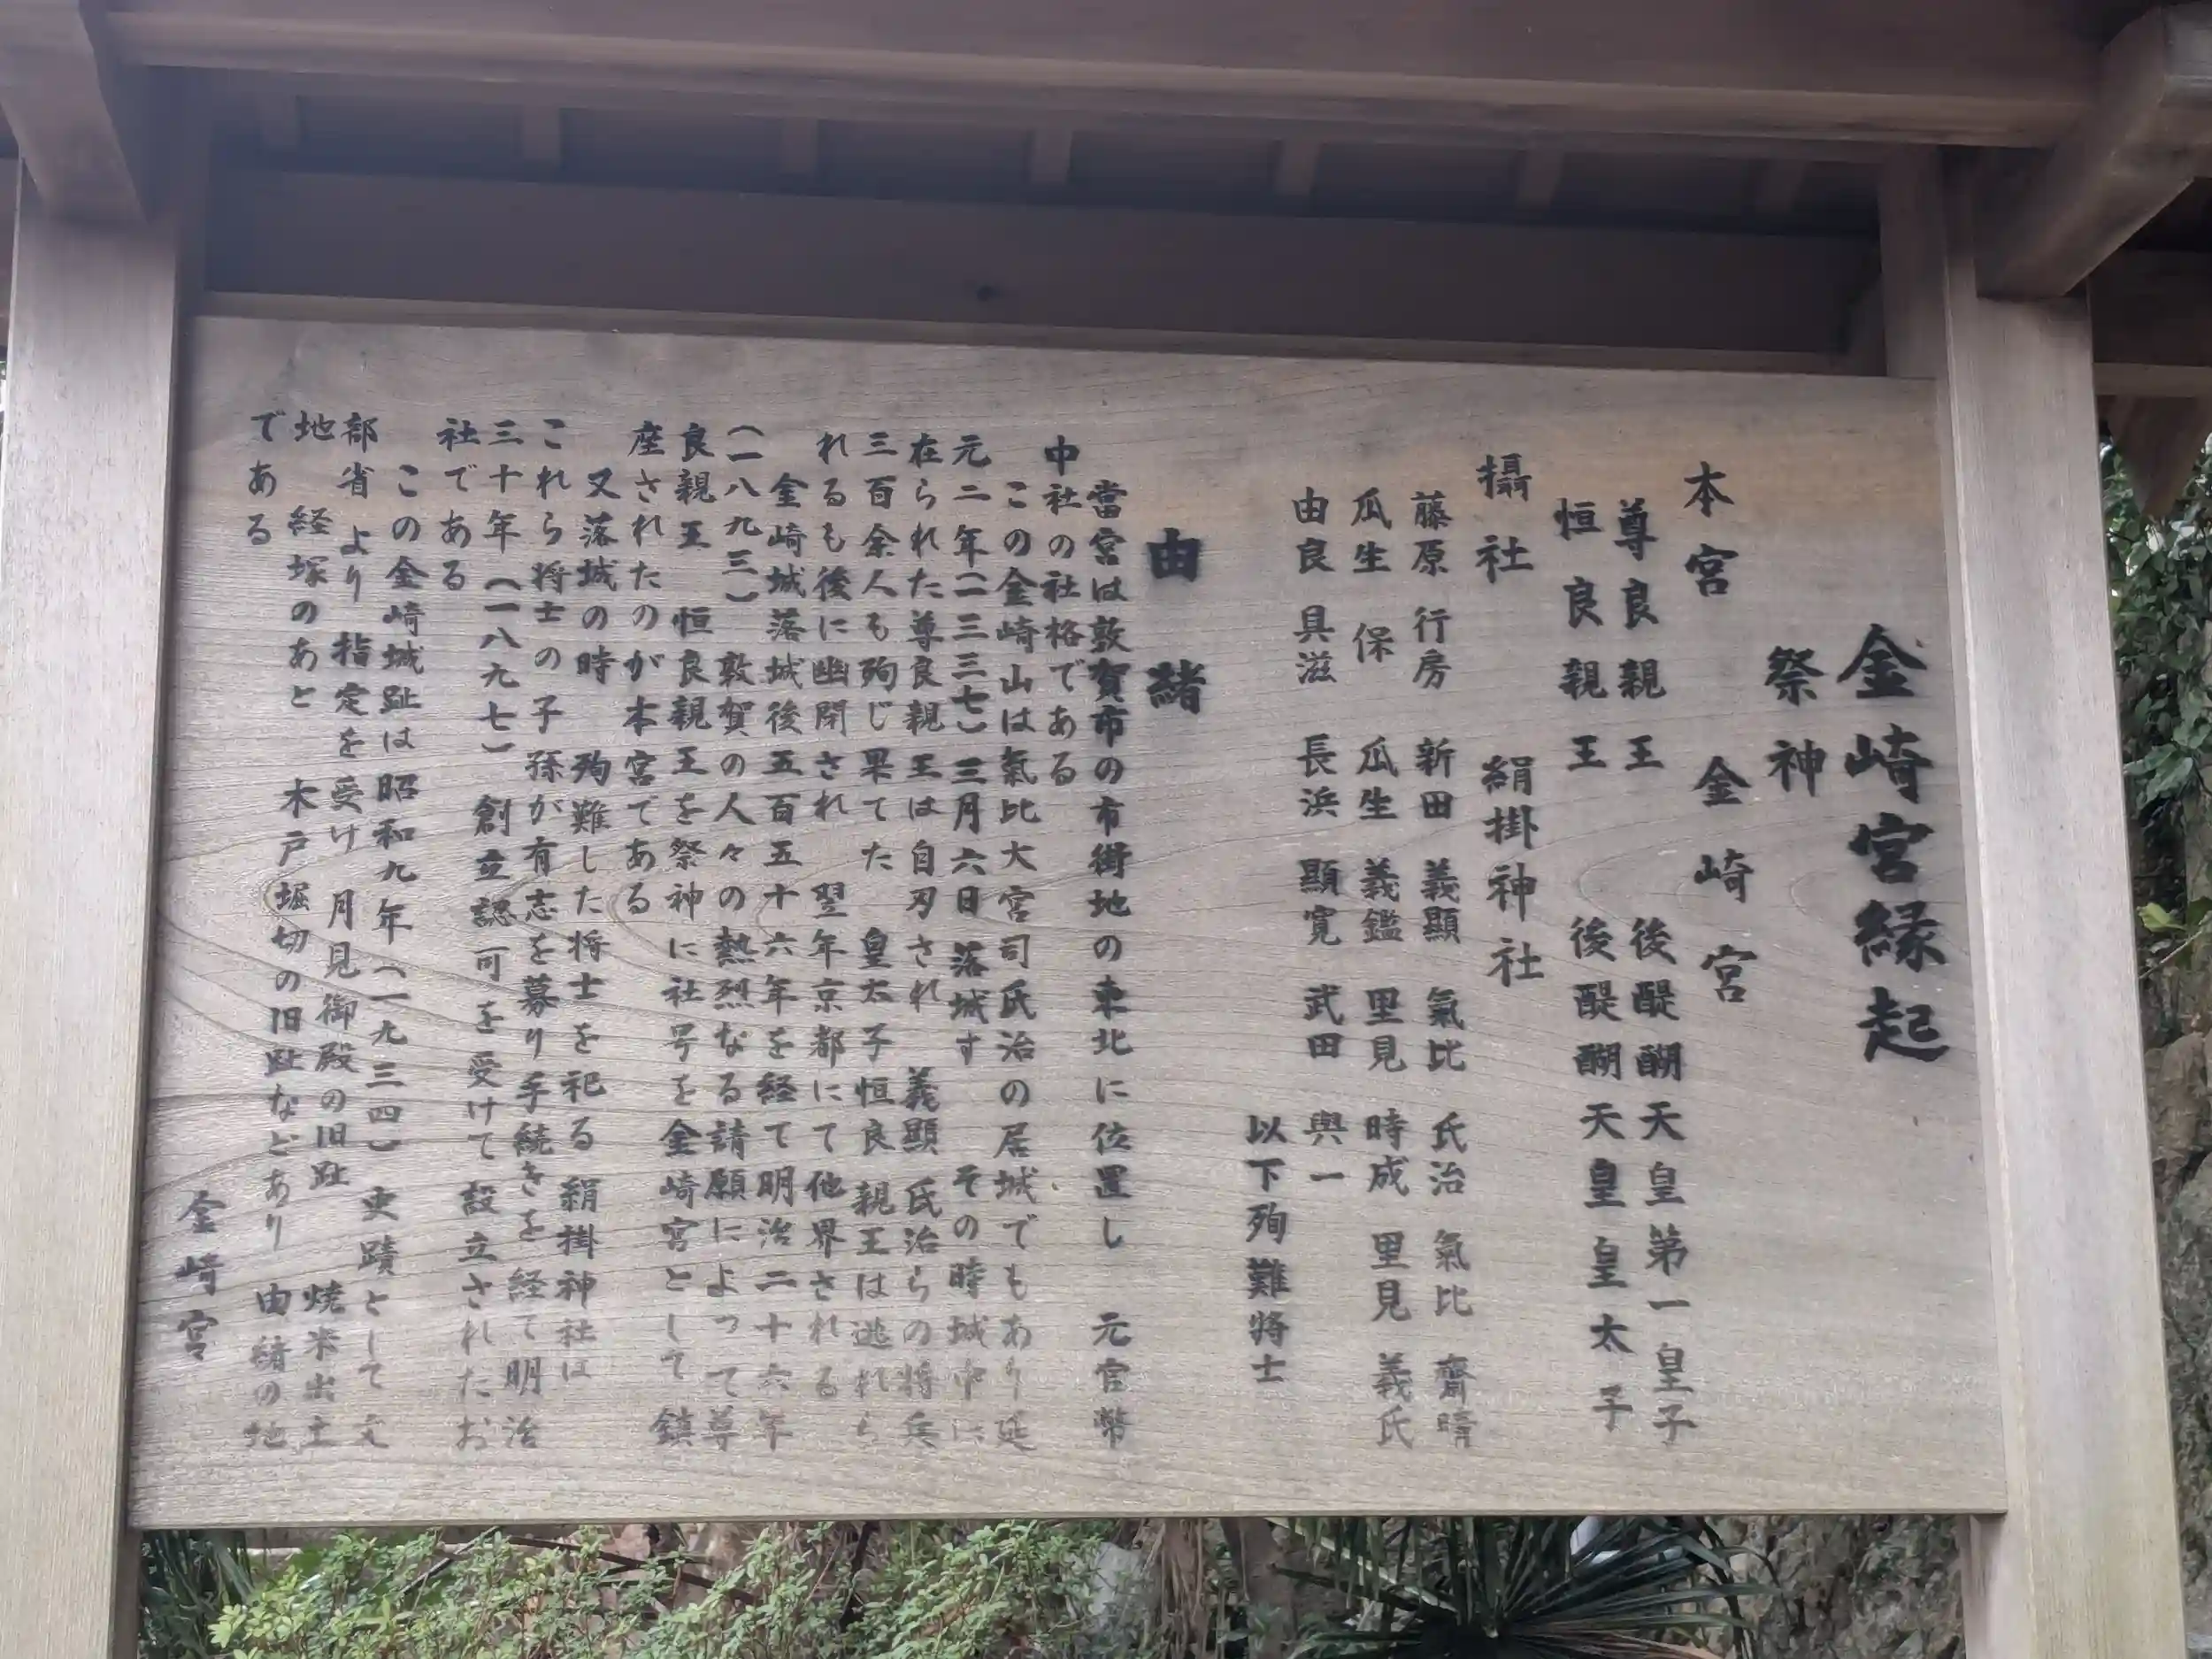 金崎宮縁起
祭神
本宮 金崎宮
尊良親王 後醍醐天皇第一皇子
恒良親王 後醍醐天皇皇太子
攝社 絹掛神社
藤原行房 新田義顯 氣比氏治 氣比齋晴
瓜生保 瓜生義鑑 里見時成 里見義氏
由良具滋 長浜顯寛 武田與一
以下殉難将士
由緒
當宮は敦賀市の市街地の東北に位置し 元官幣
中社の社格である
この金崎山は氣比大宮司氏治の居城でもあり延
元二年(一三三七)三月六日落城す その時城中に
在られた尊良親王は自刃され 義顯 氏治らの将兵
三百余人も殉じ果てた 皇太子恒良親王は逃れら
れるも後に幽閉され 翌年京都にて他界される
金崎城落城後五百五十六年を経て明治二十六年
(一八九三) 敦賀の人々の熱烈なる請願によって尊
良親王 恒良親王を祭神に社号を金崎宮として 鎮
座されたのが本宮である
又落城の時 殉難した将士を祀る絹掛神社は
これら将士の子孫が有志を募り手続きを経て明治
三十年(一八九七) 創立認可を受けて設立されたお
社である
この金崎城趾は昭和九年(一九三四) 史蹟として文
部省より指定を受け 月見御殿の旧趾 焼米出土
地 経塚のあと 木戸堀切の旧趾などあり 由緒の地
である
金崎宮